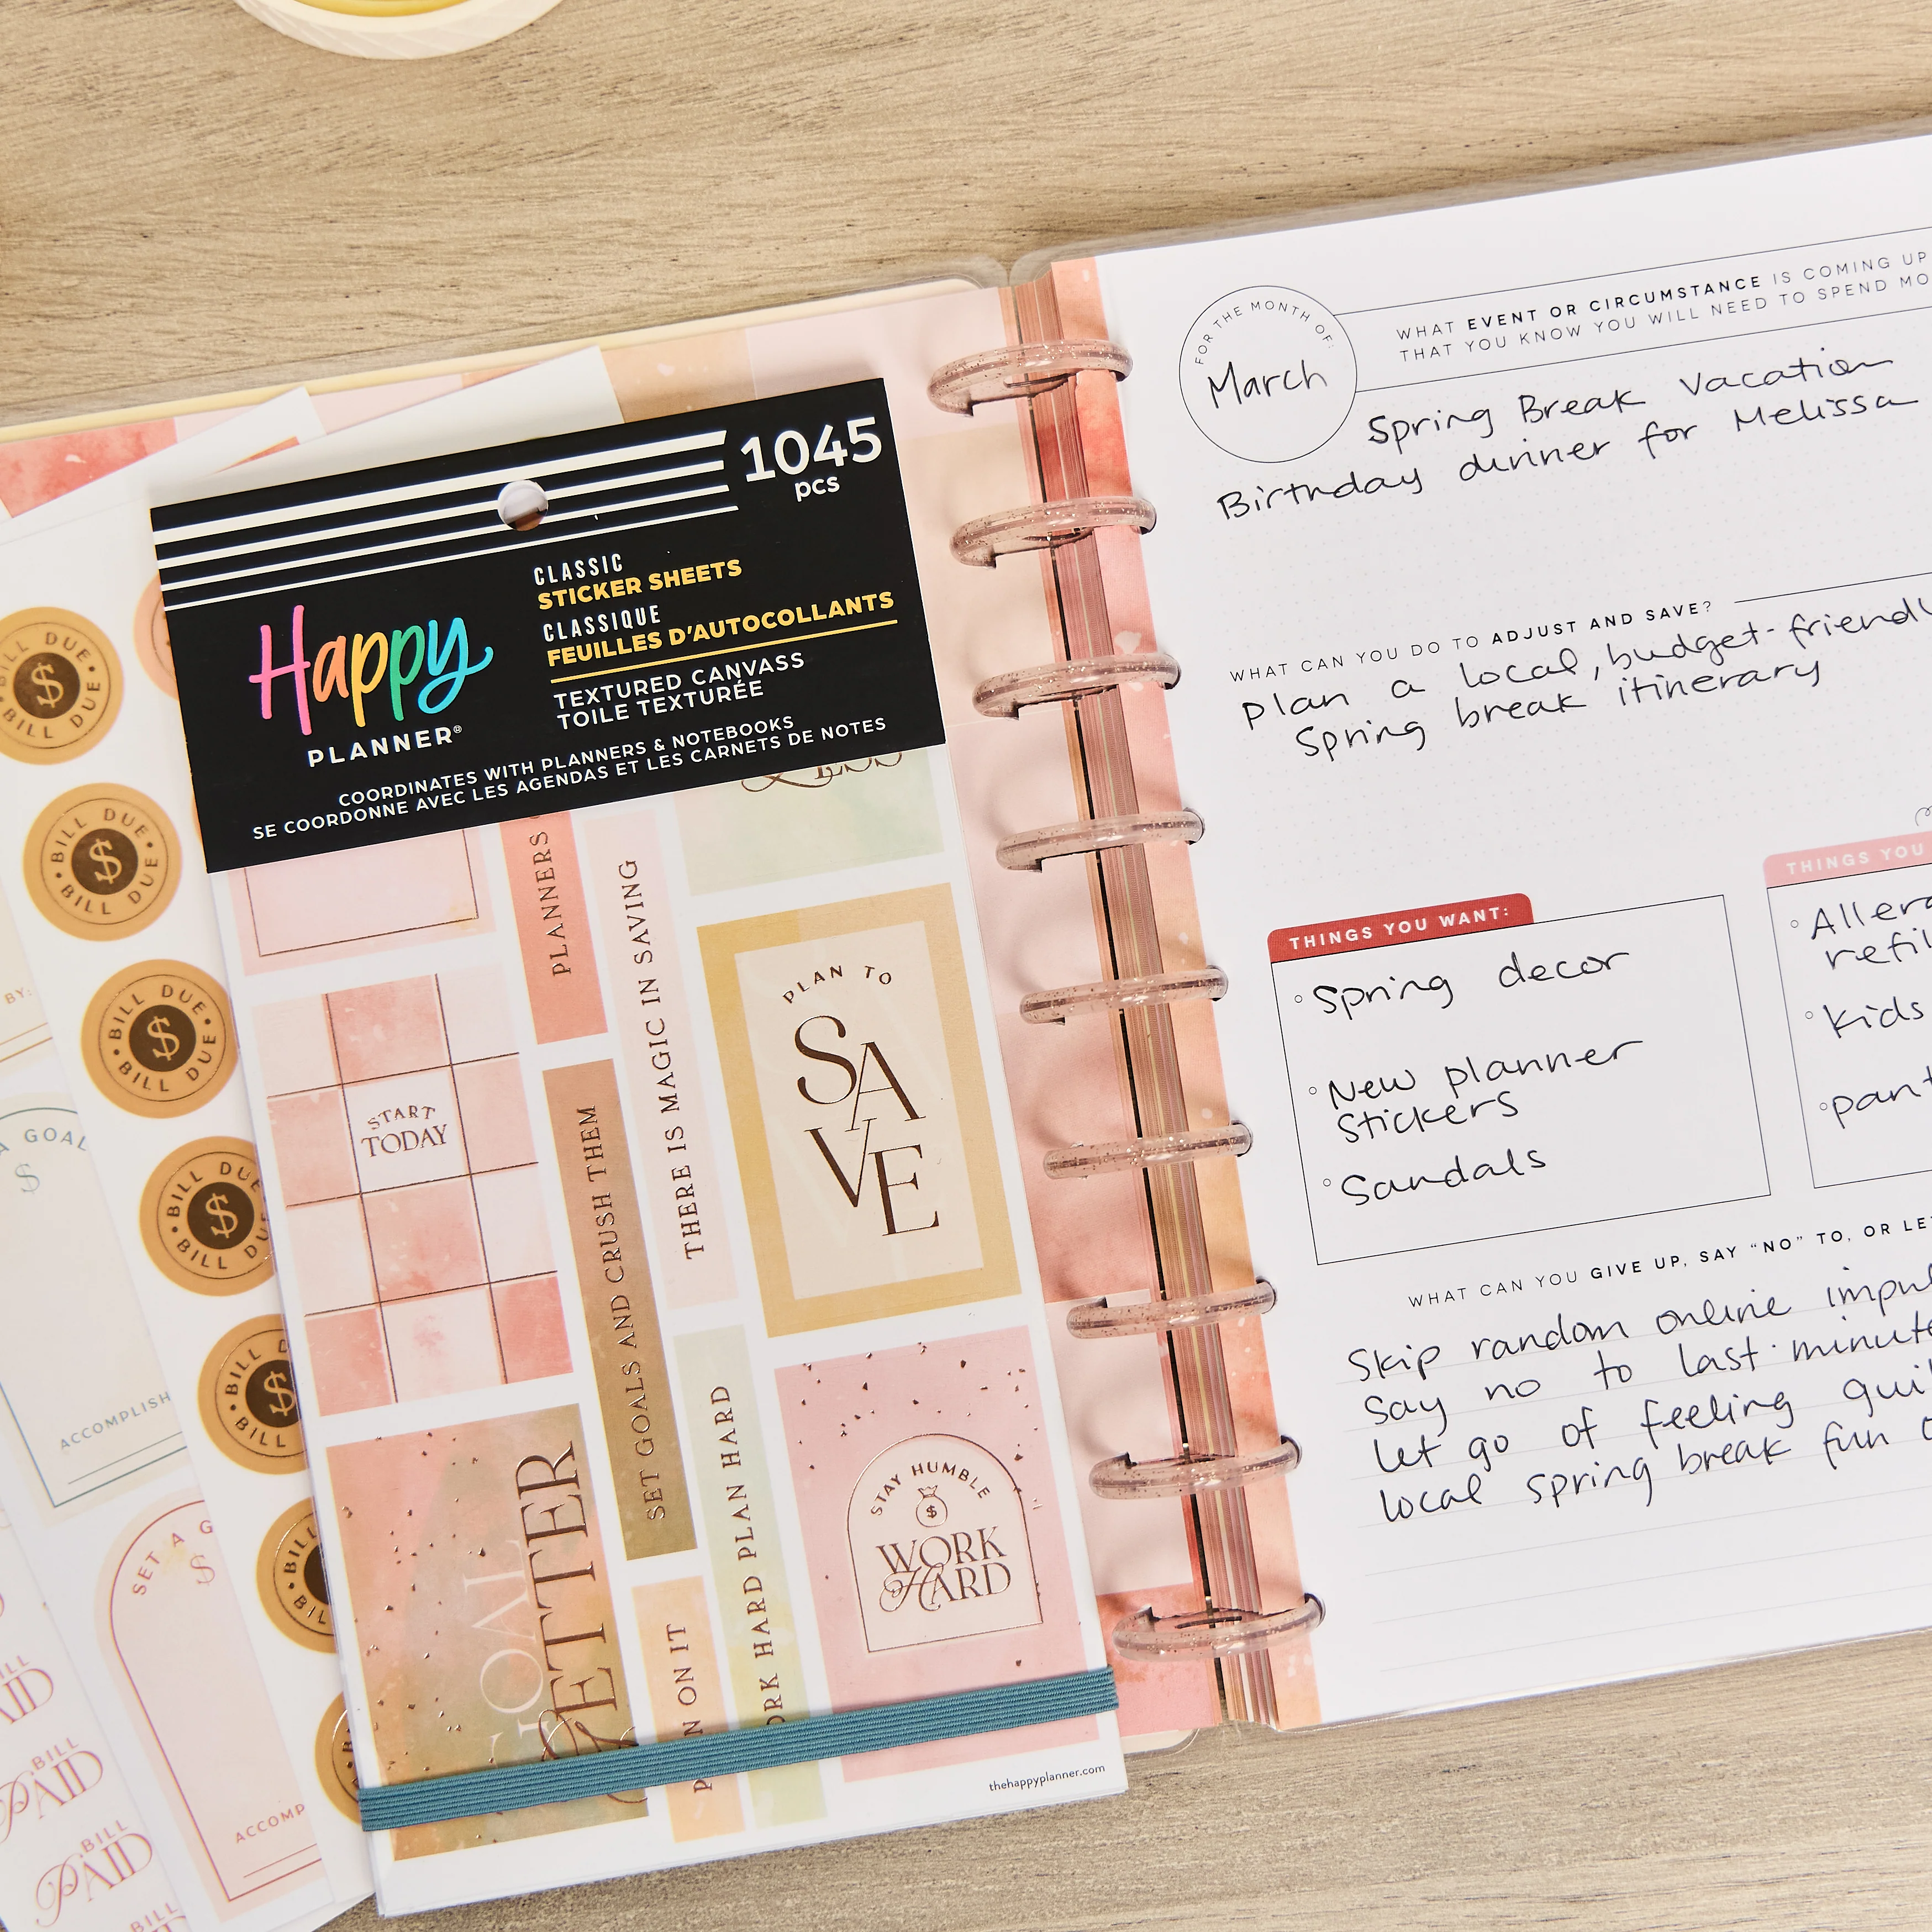 1045
pcs
CLASSIC
STICKER SHEETS
CLASSIQUE
FEUILLES D'AUTOCOLLANTS
TEXTURED CANVASS
TOILE TEXTURÉE
Happy
PLANNER®
COORDINATES WITH PLANNERS & NOTEBOOKS
SE COORDONNE AVEC LES AGENDAS ET LES CARNETS DE NOTES
PLANNERS
THERE IS MAGIC IN SAVING
PLAN TO
SAVE
START
TODAY
SET GOALS AND CRUSH THEM
HARD PLAN HARD
ON IT
GOAL
GETTER
STAY HUMBLE
$
WORK
HARD
thehappyplanner.com
BILL DUE • BILL DUE
$
BILL DUE • BILL DUE
$
BILL DUE • BILL DUE
$
BILL DUE
$
BILL
BILL DUE
$
BILL
BY:
A GOAL
$
ACCOMPLISH
SET A
$
BILL
PAID
BILL
PAID
BILL
FOR THE MONTH OF:
March
WHAT EVENT OR CIRCUMSTANCE IS COMING UP
THAT YOU KNOW YOU WILL NEED TO SPEND
Spring Break Vacation
Birthday dinner for Melissa
WHAT CAN YOU DO TO ADJUST AND SAVE?
plan a local, budget-friendly
Spring break itinerary
THINGS YOU WANT:
Spring decor
New planner
Stickers
Sandals
THINGS YOU
kids
WHAT CAN YOU GIVE UP, SAY "NO" TO, OR
Skip random online
Say no to last-minute
let go of feeling
local spring break fun